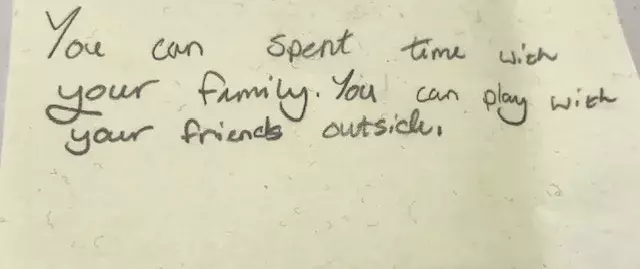 You can spent time with
your family. You can play with
your friends outside.